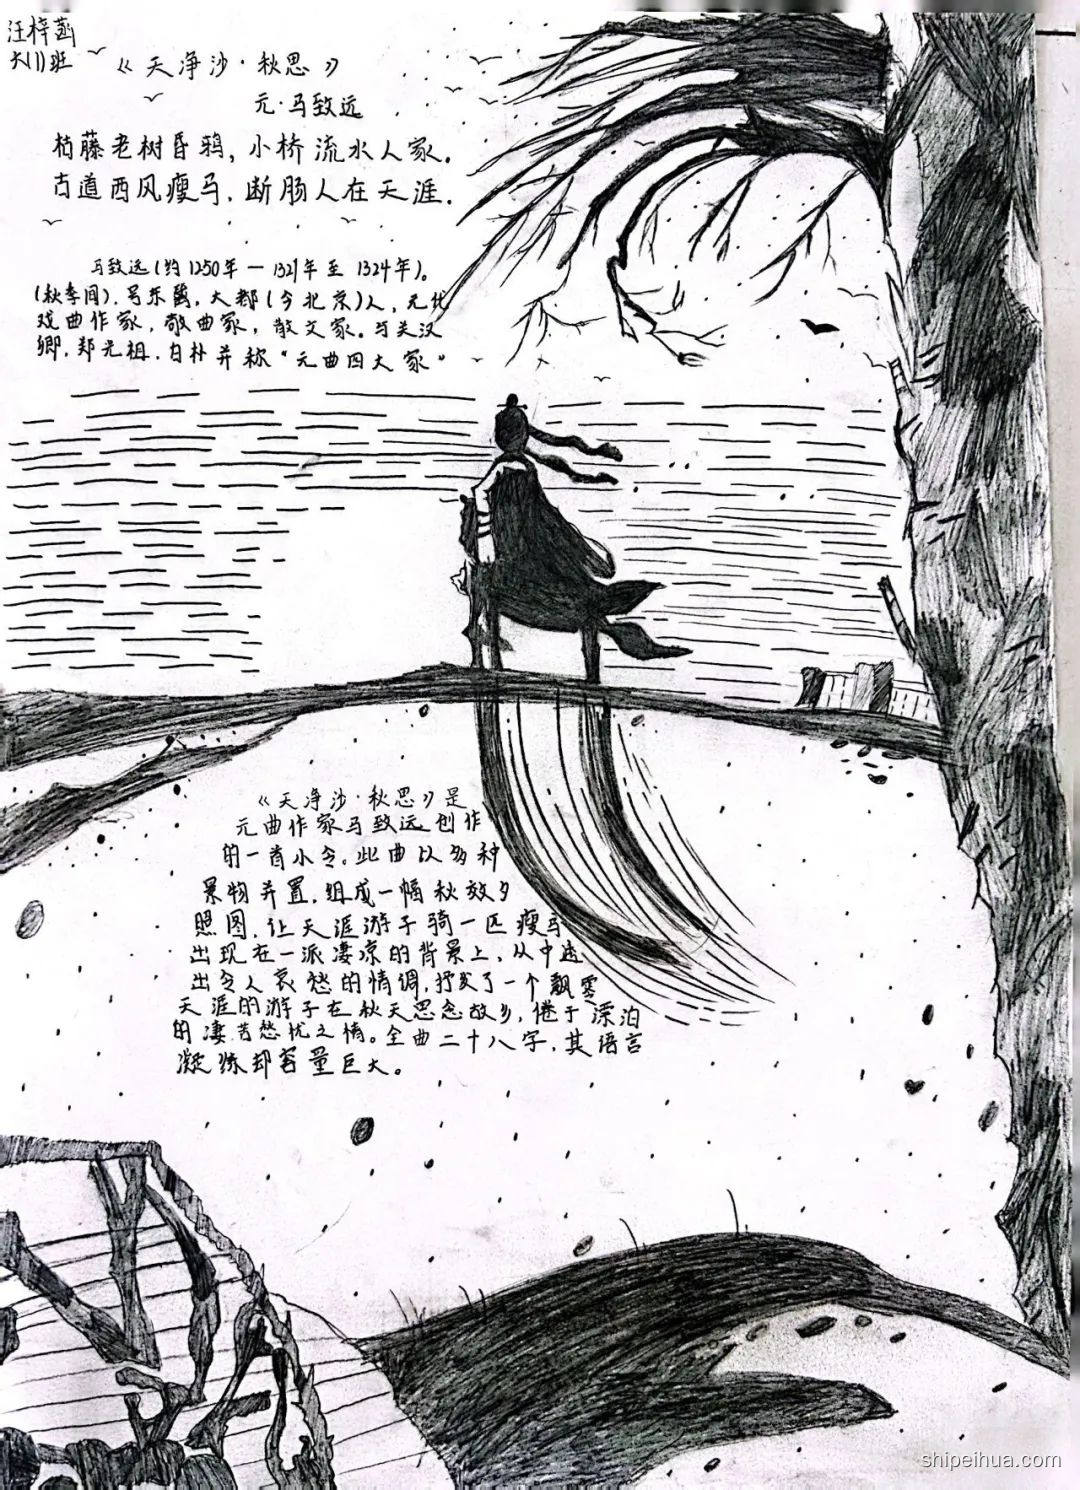 汪梓菡
六11班
《天净沙·秋思》
元·马致远
枯藤老树昏鸦,小桥流水人家.
古道西风瘦马,断肠人在天涯.
马致远(约1250年—1321年至1324年)。
(秋季间),号东篱,大都(今北京)人,元代
戏曲作家,散曲家,散文家。与关汉
卿,郑光祖,白朴并称“元曲四大家”
《天净沙·秋思》是
元曲作家马致远创作
的一首小令。此曲以多种
景物并置,组成一幅秋效夕
照图,让天涯游子骑一匹瘦马
出现在一派凄凉的背景上,从中透
出令人哀愁的情调,抒发了一个飘零
天涯的游子在秋天思念故乡,倦于漂泊
的凄苦愁忧之情。全曲二十八字,其语言
凝练却容量巨大。
shipeihua.com